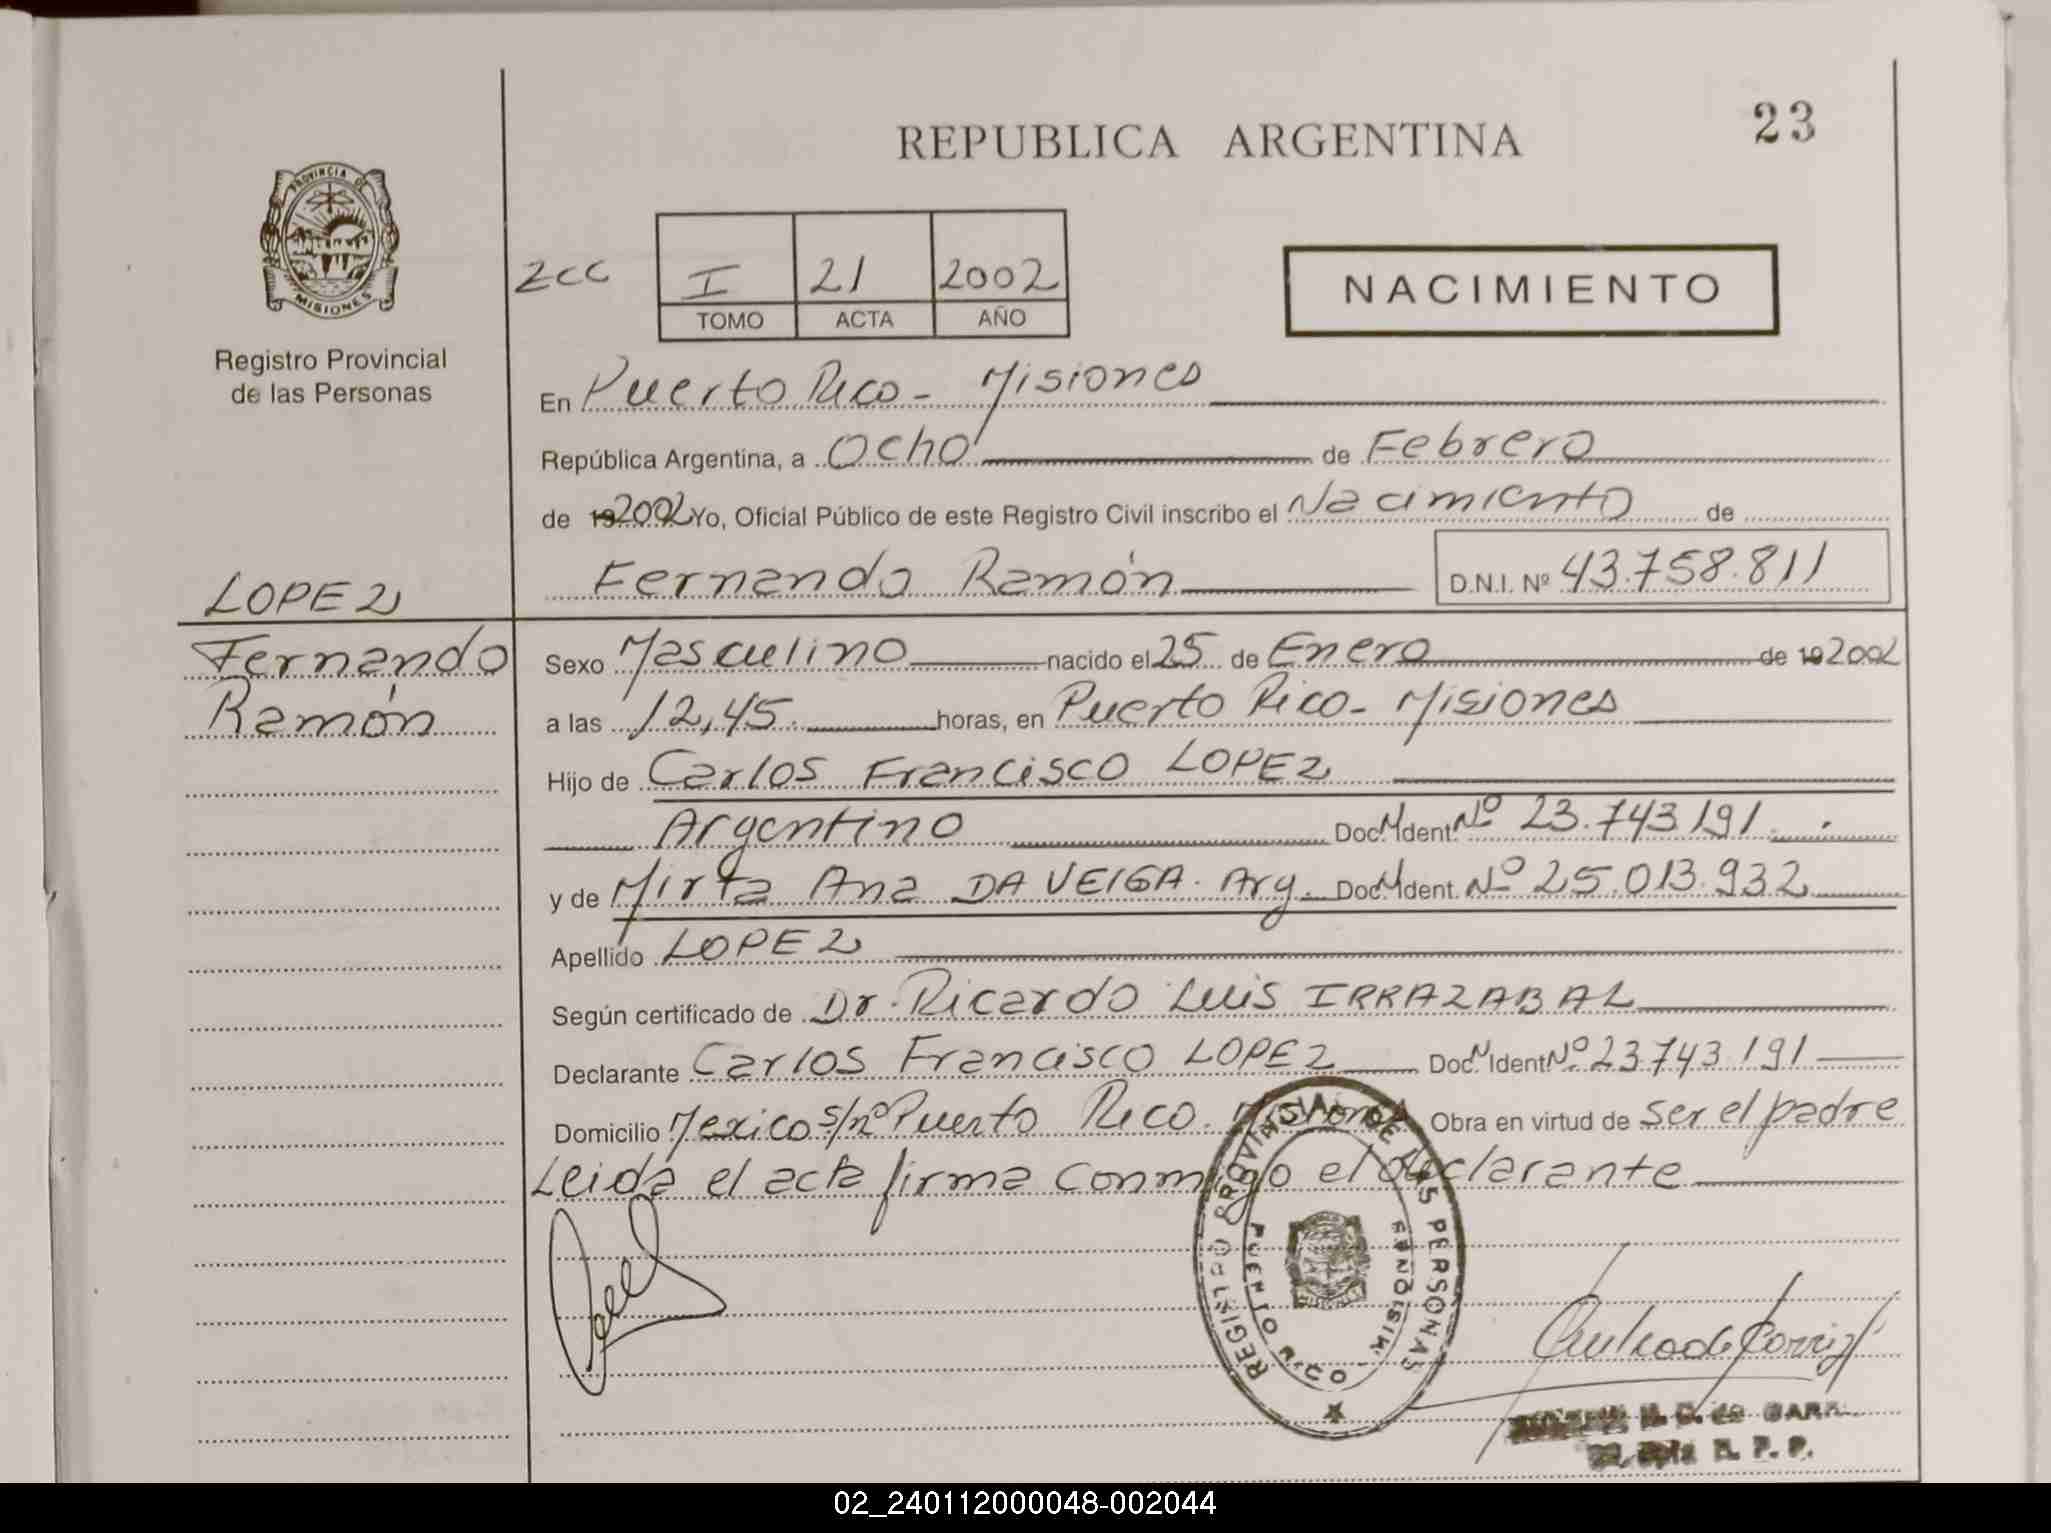 REPUBLICA ARGENTINA
23
PROVINCIA DE
MISIONES
Registro Provincial
de las Personas
2CC
I 21 2002
TOMO ACTA AÑO
NACIMIENTO
En Puerto Rico - Misiones
República Argentina, a Ocho de Febrero
de 192002 Yo, Oficial Público de este Registro Civil inscribo el Nacimiento de
Fernando Ramón D.N.I. Nº 43.758.811
LOPEZ
Fernando
Ramón
Sexo Masculino nacido el 25 de Enero de 192002
a las 12,45. horas, en Puerto Rico - Misiones
Hijo de Carlos Francisco LOPEZ
Argentino Doc. N. Ident. Nº 23.743.191.
y de Mirta Ana DA VEIGA. Arg. Doc. N. Ident. Nº 25.013.932
Apellido LOPEZ
Según certificado de Dr. Ricardo Luis IRRAZABAL
Declarante Carlos Francisco LOPEZ Doc. N. Ident. Nº 23.743.191
Domicilio Mexico s/nº Puerto Rico. Misiones Obra en virtud de ser el padre
Leida el acta firma conmigo el declarante
REGISTRO PROVINCIAL DE LAS PERSONAS
PUERTO RICO - MISIONES
02_240112000048-002044